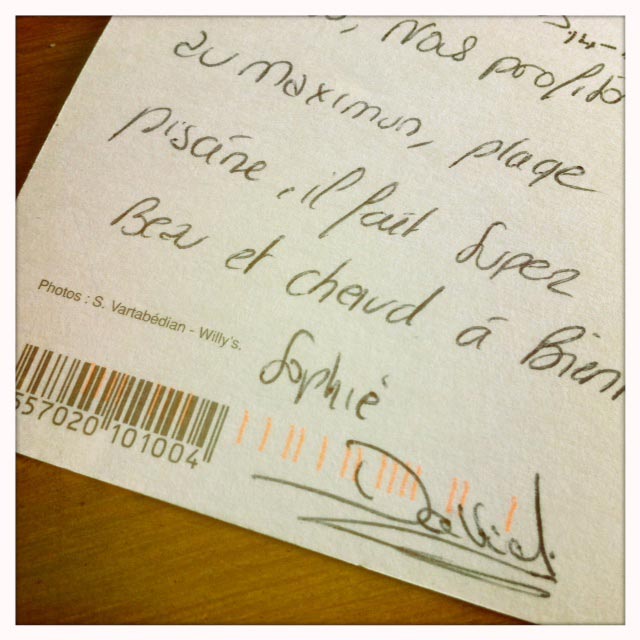 , nous profito
au maximun, plage
piscine, il fait super
Beau et chaud à Bien
Photos : S. Vartabédian - Willy's.
Sophie
557020 101004
David